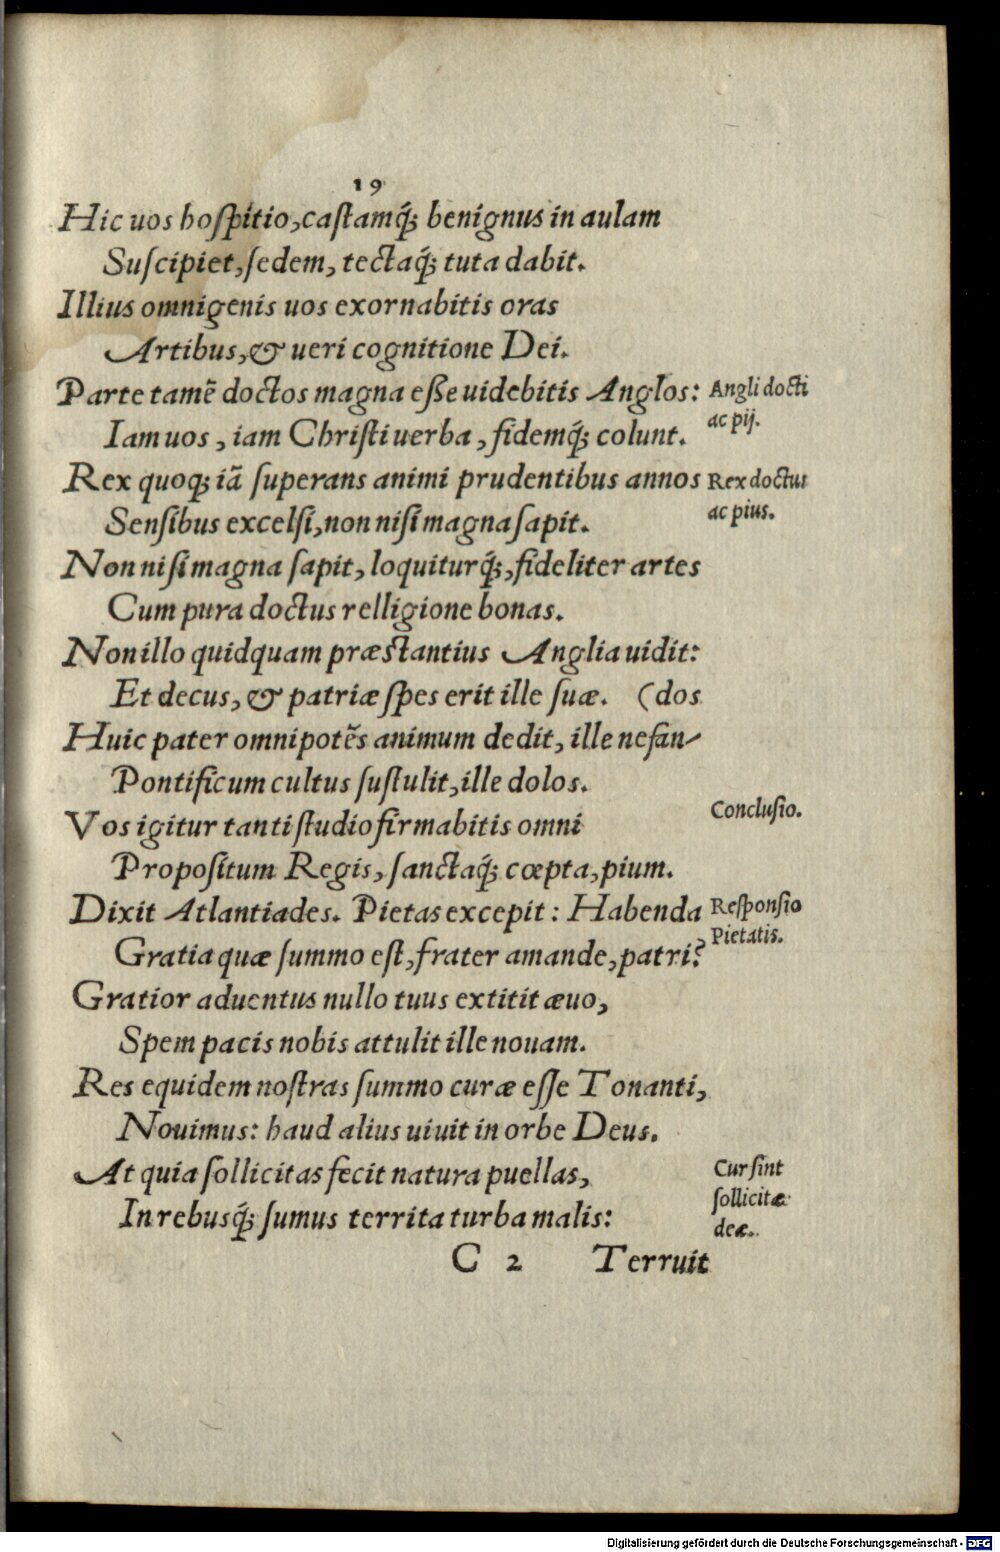 19
Hic uos hoſpitio, caſtamq́; benignus in aulam
Suſcipiet, ſedem, tectaq́; tuta dabit.
Illius omnigenis uos exornabitis oras
Artibus, & ueri cognitione Dei.
Parte tamē doctos magna eſſe uidebitis Anglos:
Angli docti
ac pij.
Iam uos, iam Chriſti uerba, fidemq́; colunt.
Rex quoq; iā ſuperans animi prudentibus annos
Rex doctus
ac pius.
Senſibus excelſi, non niſi magna ſapit.
Non niſi magna ſapit, loquiturq́;, fideliter artes
Cum pura doctus relligione bonas.
Non illo quidquam præſtantius Anglia uidit:
Et decus, & patriæ ſpes erit ille ſuæ. (dos
Huic pater omnipotēs animum dedit, ille nefan-
Pontificum cultus ſuſtulit, ille dolos.
Conclusio.
Vos igitur tanti ſtudio firmabitis omni
Propoſitum Regis, ſanctaq́; cœpta, pium.
Dixit Atlantiades. Pietas excepit: Habenda
Reſponſio
Pietatis.
Gratia quæ ſummo eſt, frater amande, patri?
Gratior aduentus nullo tuus extitit æuo,
Spem pacis nobis attulit ille nouam.
Res equidem noſtras ſummo curæ eſſe Tonanti,
Nouimus: haud alius uiuit in orbe Deus.
At quia ſollicitas fecit natura puellas,
Cur ſint
ſollicitæ
deæ.
In rebusq́; ſumus territa turba malis:
C 2 Terruit
Digitalisierung gefördert durch die Deutsche Forschungsgemeinschaft - DFG